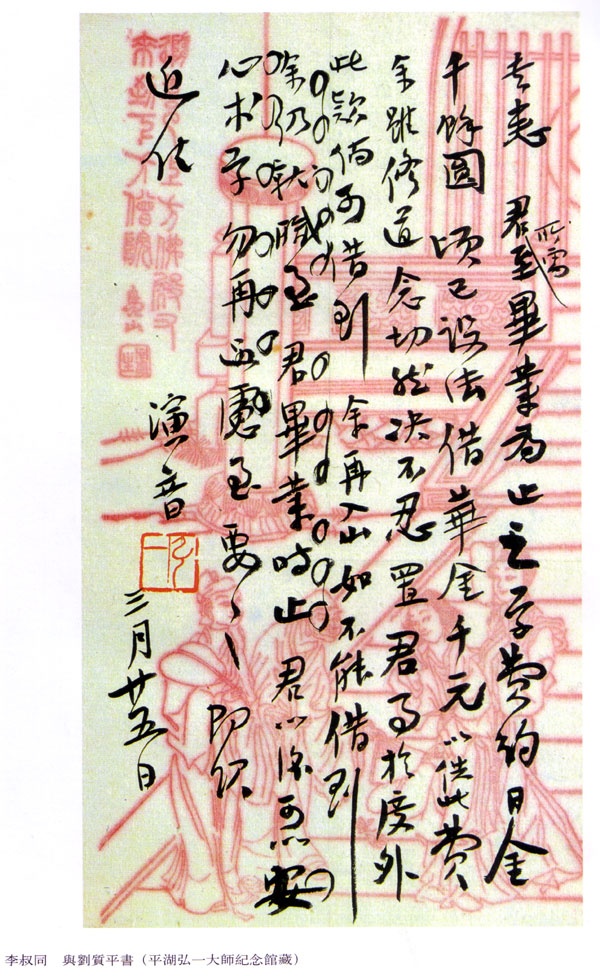 書悉 君所需至畢業為止之學費約日金
千餘圓 頃已設法借華金千元以供此費
余雖修道念切然決不忍置 君事於度外
此款倘可借到 余再入山如不能借到
余仍就職至 君畢業時止 君以後可以安
心求學勿再過慮至要〻 即頌
近佳
演音
三月廿五日
李叔同 與劉質平書（平湖弘一大師紀念館藏）